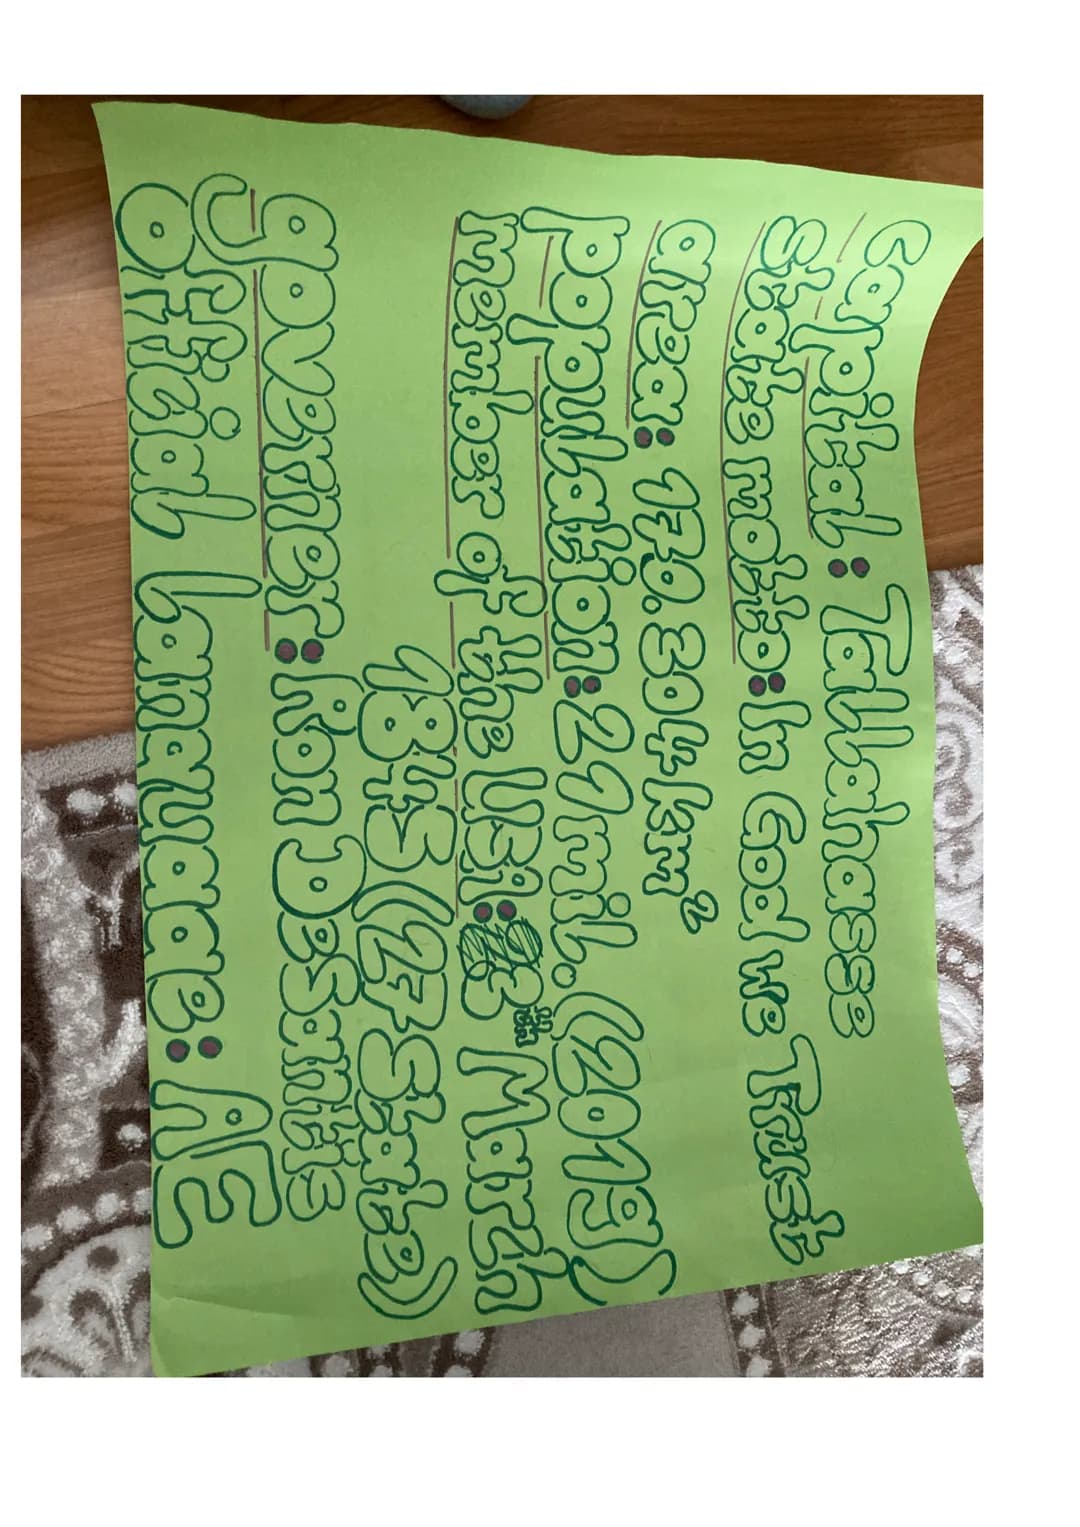 capital: Tallahasse
state motto: In God we Trust
area: 170.304 km²
population: 21 mil. (2019)
member of the USA: 3 March
1845 (27 State)
governer: Ron Desantis
official Lanuage: AE